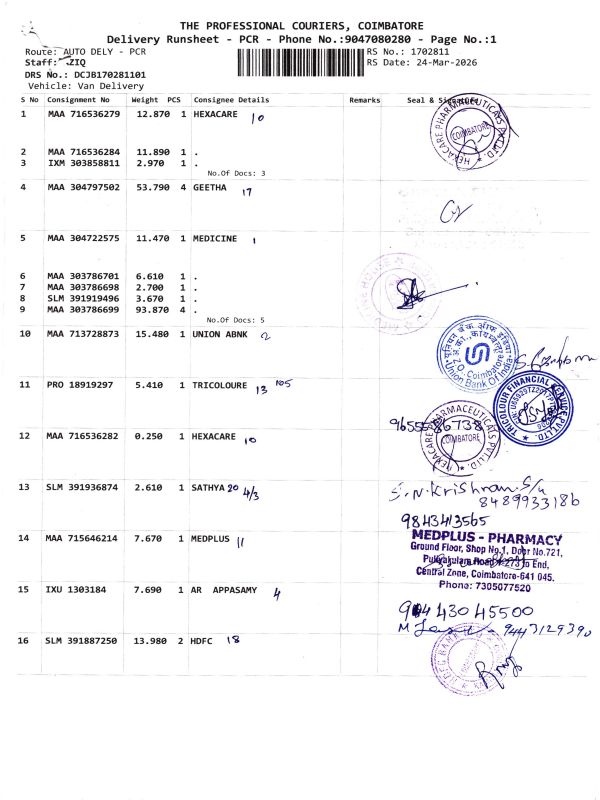 THE PROFESSIONAL COURIERS, COIMBATORE
Delivery Runsheet - PCR - Phone No.:9047080280 - Page No.:1
Route: AUTO DELY - PCR
RS No.: 1702811
Staff: ZIQ
RS Date: 24-Mar-2026
DRS No.: DCJB170281101
Vehicle: Van Delivery
S No Consignment No Weight PCS Consignee Details Remarks Seal & Signature
1 MAA 716536279 12.870 1 HEXACARE 10
HEXACARE PHARMACEUTICALS PVT.LTD.
COIMBATORE
2 MAA 716536284 11.890 1 .
3 IXM 303858811 2.970 1 .
No.Of Docs: 3
4 MAA 304797502 53.790 4 GEETHA 17
5 MAA 304722575 11.470 1 MEDICINE 1
6 MAA 303786701 6.610 1 .
7 MAA 303786698 2.700 1 .
8 SLM 391919496 3.670 1 .
9 MAA 303786699 93.870 4 .
No.Of Docs: 5
10 MAA 713728873 15.480 1 UNION ABNK 2
Union Bank Of India
Coimbatore
11 PRO 18919297 5.410 1 TRICOLOURE 13 105
TRICOLOUR FINANCIAL SERVICE PVT.LTD.
9655586738
12 MAA 716536282 0.250 1 HEXACARE 10
HEXACARE PHARMACEUTICALS PVT.LTD.
COIMBATORE
13 SLM 391936874 2.610 1 SATHYA 20 4/3
S.N.Krishnan. S/u
8489933186
9843413565
14 MAA 715646214 7.670 1 MEDPLUS 11
MEDPLUS - PHARMACY
Ground Floor, Shop No.1, Door No.721,
Puliyakulam Road to End,
Central Zone, Coimbatore-641 045.
Phone: 7305077520
15 IXU 1303184 7.690 1 AR APPASAMY 4
944 430 45500
9443129390
16 SLM 391887250 13.980 2 HDFC 18
HDFC BANK